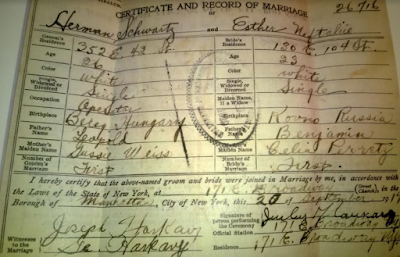 CERTIFICATE AND RECORD OF MARRIAGE
26716
Herman Schwartz and Esther
Groom's Residence 352 E 42 St. Bride's Residence 130 E. 104 St.
Age 26 Age 23
Color white Color white
Single, Widowed or Divorced Single Single, Widowed or Divorced Single
Occupation Operator Maiden Name, if a Widow
Birthplace Hungary Birthplace Kovno Russia
Father's Name Leopold Father's Name Benjamin
Mother's Maiden Name Weiss Mother's Maiden Name Celia
Number of Groom's Marriage First Number of Bride's Marriage First
I hereby certify that the above-named groom and bride were joined in Marriage by me, in accordance with
the Laws of the State of New York, at 171 E. Broadway (Street), in the
Borough of Manhattan, City of New York, this 20 of September
Signature of person performing the Ceremony
Official Station 171 E. Broadway
Witnesses to the Marriage Joseph Harkavy
Harkavy Residence 171 E. Broadway